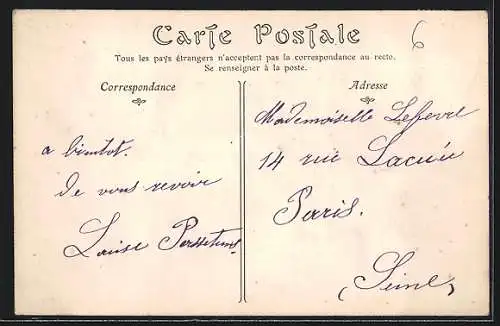 Carte Postale
6
Tous les pays étrangers n'acceptent pas la correspondance au recto.
Se renseigner à la poste.
Correspondance
a bientot.
de vous revoir
Louise
Adresse
Mademoiselle Lefevre
14 rue Lacuée
Paris.
(Seine)